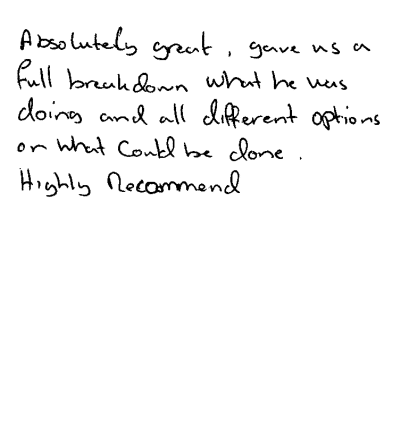 Absolutely great, gave us a
full breakdown what he was
doing and all different options
on what could be done.
Highly Recommend